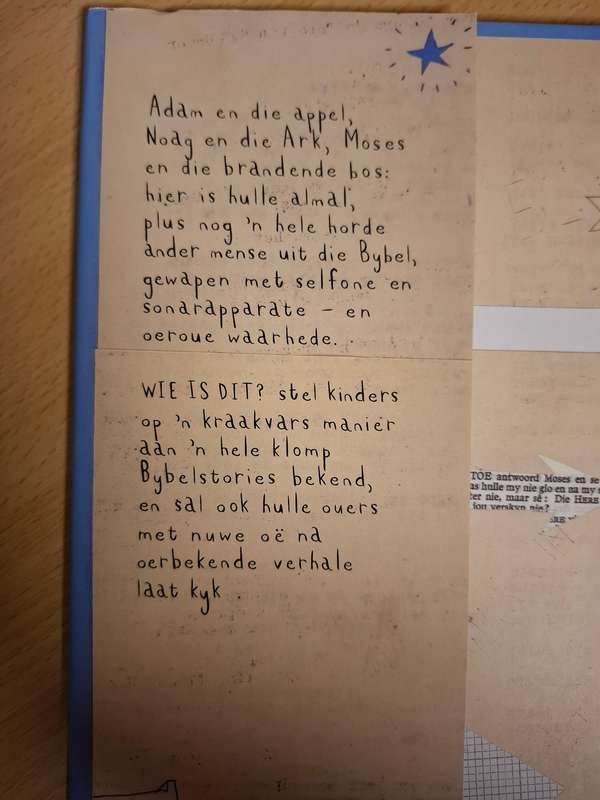 Adam en die appel,
Noag en die Ark, Moses
en die brandende bos:
hier is hulle almal,
plus nog 'n hele horde
ander mense uit die Bybel,
gewapen met selfone en
sonarapparate – en
oeroue waarhede.
WIE IS DIT? stel kinders
op 'n kraakvars manier
aan 'n hele klomp
Bybelstories bekend,
en sal ook hulle ouers
met nuwe oë na
oerbekende verhale
laat kyk.
TOE antwoord Moses en se
hulle my nie glo en na my
ter nie, maar sê: Die HERE
jou verskyn nie?